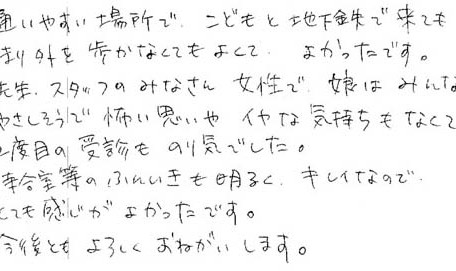 通いやすい場所で、こどもと地下鉄で来ても
まり外を歩かなくてもよくて、よかったです。
先生、スタッフのみなさん 女性で、娘はみんな
やさしそうで怖い思いや イヤな気持ちもなくて
2度目の受診も のり気でした。
待合室等のふんいきも明るく、キレイなので、
ても感じがよかったです。
今後とも よろしく おねがいします。